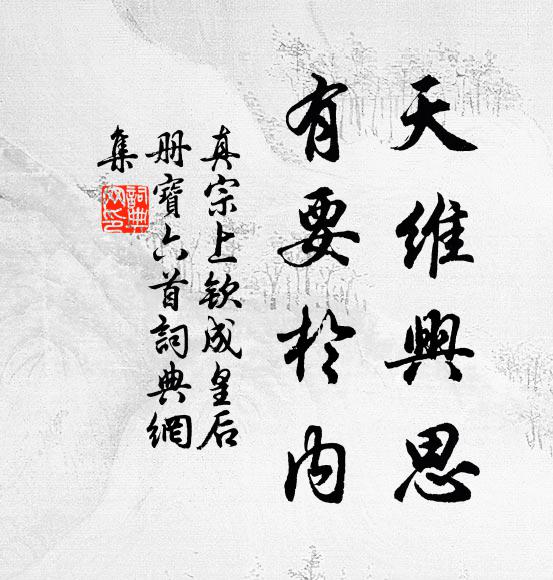 天維興思
有要於内
真宗上欽成皇后
册寶六首詞典網
集
詞典網印